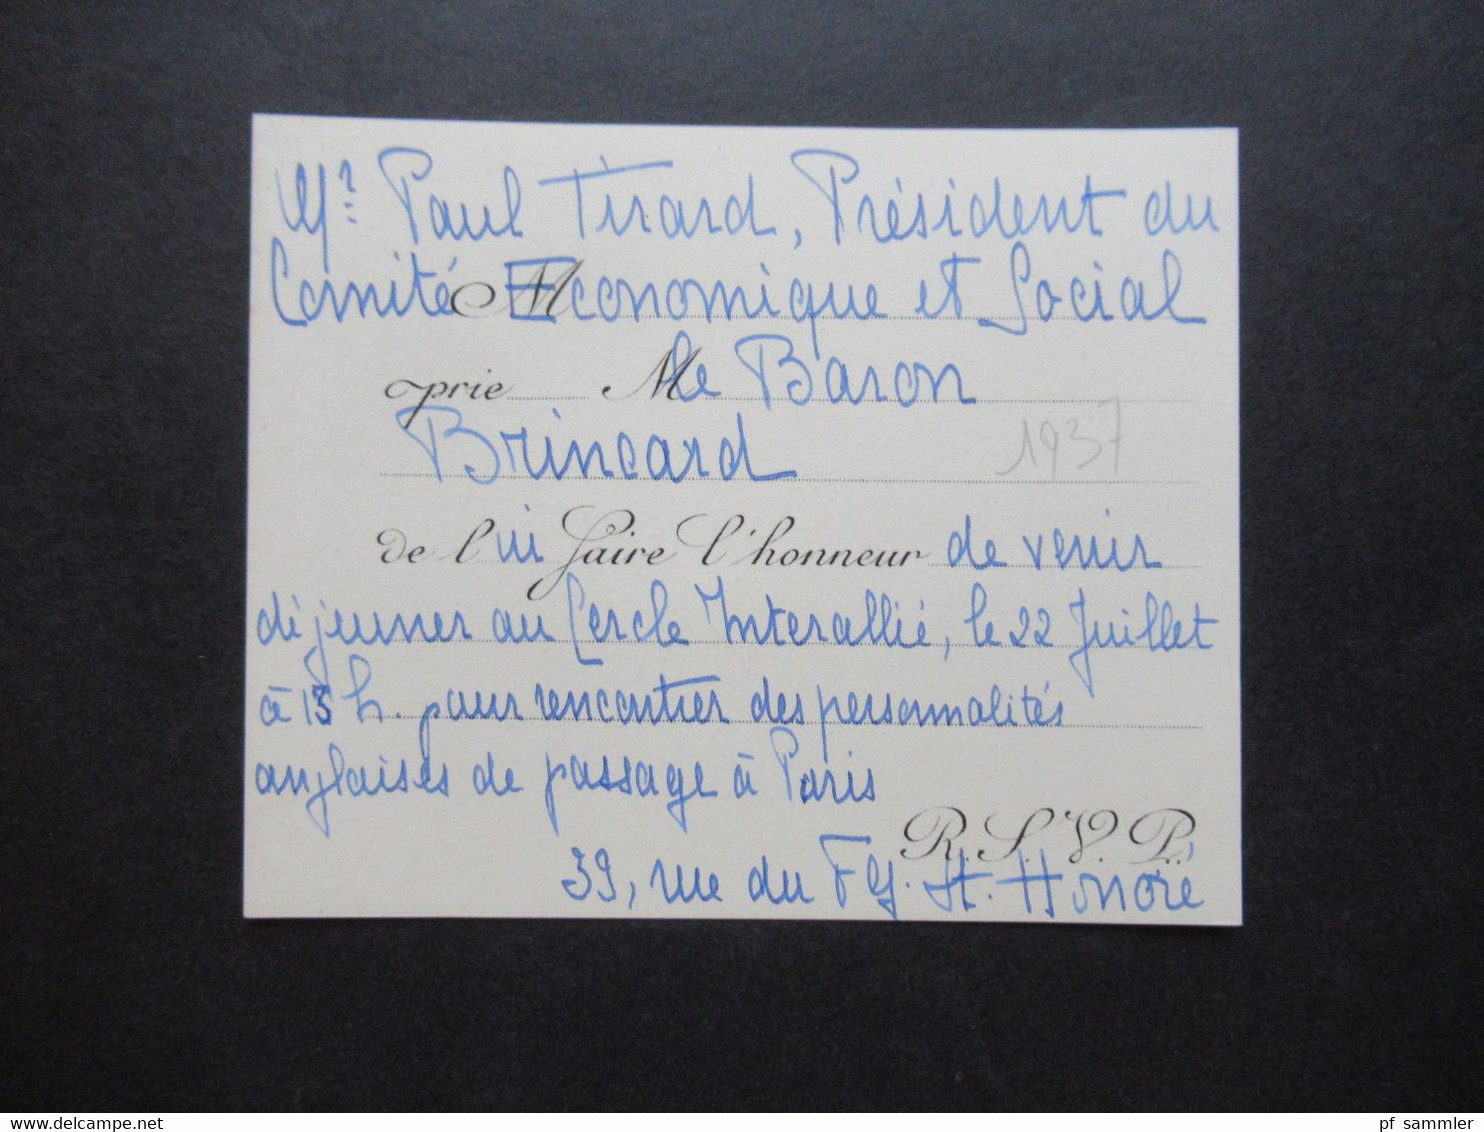 Mr. Paul Tirard, Président du
Comité Economique et Social
M
prie M le Baron
Brincard 1937
de l'ui faire l'honneur de venir
déjeuner au Cercle Interallié, le 22 Juillet
à 13 h. pour rencontrer des personnalités
anglaises de passage à Paris
R.S.V.P.
39, rue du Fg. St. Honoré
www.delcampe.net
pf_sammler